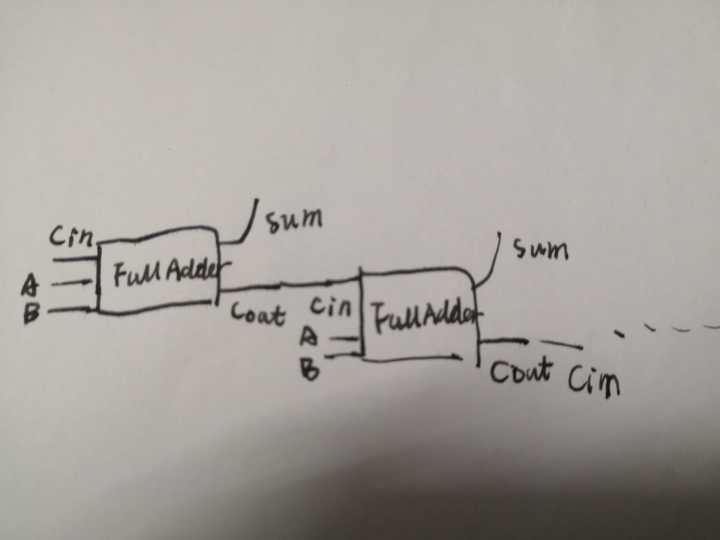 Cin
sum
A
Full Adder
B
Cout
Cin
A
B
Full Adder
sum
Cout
Cin